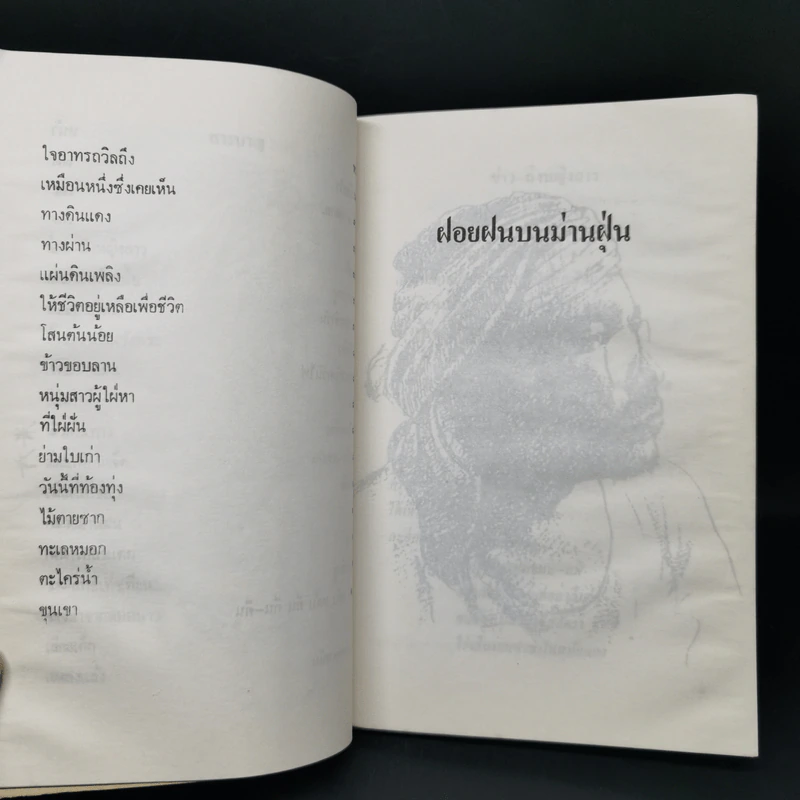 ใจอาทรถวิลถึง
เหมือนหนึ่งซึ่งเคยเห็น
ทางดินแดง
ทางผ่าน
แผ่นดินเพลิง
ให้ชีวิตอยู่เหลือเพื่อชีวิต
โสนต้นน้อย
ข้าวขอบลาน
หนุ่มสาวผู้ใฝ่หา
ที่ใฝ่ฝัน
ย่ามใบเก่า
วันนี้ที่ท้องทุ่ง
ไม้ตายซาก
ทะเลหมอก
ตะไคร่น้ำ
ขุนเขา
ฝอยฝนบนม่านฝุ่น